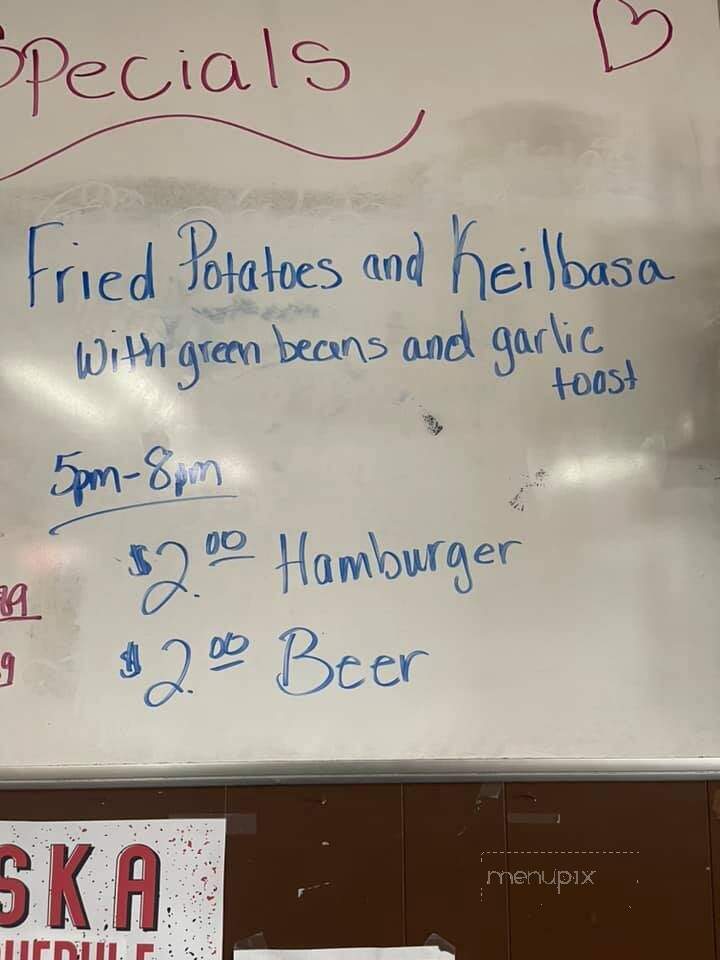 Specials
Fried Potatoes and Keilbasa
with green beans and garlic
toast
5pm-8pm
$2.00 Hamburger
$2.00 Beer
89
9
SKA
menupix